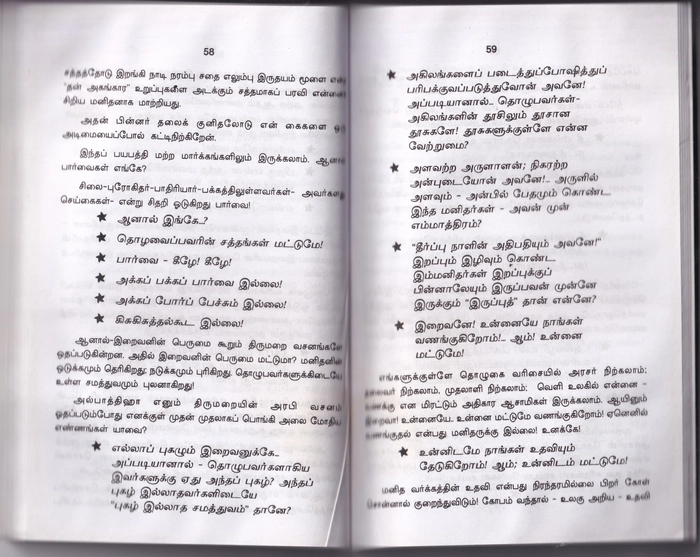 58
சத்தத்தோடு இறங்கி நாடி நரம்பு சதை எலும்பு இருதயம் மூளை என
"தன் அகங்கார" உறுப்புகளை அடக்கும் சத்தமாகப் பரவி என்னை
சிறிய மனிதனாக மாற்றியது.
அதன் பின்னர் தலைக் குனிதலோடு என் கைகளை ஓர்
அடிமையைப்போல் கட்டிநிற்கிறேன்.
இந்தப் பயபத்தி மற்ற மார்க்கங்களிலும் இருக்கலாம். ஆனால்
பார்வைகள் எங்கே?
சிலை-புரோகிதர்-பாதிரியார்-பக்கத்திலுள்ளவர்கள்- அவர்களது
செய்கைகள்- என்று சிதறி ஓடுகிறது பார்வை!
★ ஆனால் இங்கே..?
★ தொழவைப்பவரின் சத்தங்கள் மட்டுமே!
★ பார்வை - கீழே! கீழே!
★ அக்கப் பக்கப் பார்வை இல்லை!
★ அக்கப் போர்ப் பேச்சும் இல்லை!
★ கிசுகிசுத்தல்கூட இல்லை!
ஆனால்-இறைவனின் பெருமை கூறும் திருமறை வசனங்களே
ஓதப்படுகின்றன. அதில் இறைவனின் பெருமை மட்டுமா? மனிதனின்
ஒடுக்கமும் தெரிகிறது; நடுக்கமும் புரிகிறது. தொழுபவர்களுக்கிடையே
உள்ள சமத்துவமும் புலனாகிறது!
அல்பாத்திஹா எனும் திருமறையின் அரபி வசனம்
ஓதப்படும்போது எனக்குள் முதன் முதலாகப் பொங்கி அலை மோதிய
எண்ணங்கள் யாவை?
★ எல்லாப் புகழும் இறைவனுக்கே..
அப்படியானால் - தொழுபவர்களாகிய
இவர்களுக்கு ஏது அந்தப் புகழ்? அந்தப்
புகழ் இல்லாதவர்களிடையே
"புகழ் இல்லாத சமத்துவம்" தானே?
59
★ அகிலங்களைப் படைத்துப்போஷித்துப்
பரிபக்குவப்படுத்துவோன் அவனே!
அப்படியானால்.. தொழுபவர்கள்-
அகிலங்களின் தூசிலும் தூசான
தூசுகளே! தூசுகளுக்குள்ளே என்ன
வேற்றுமை?
★ அளவற்ற அருளாளன்; நிகரற்ற
அன்புடையோன் அவனே!.. அருளில்
அளவும் - அன்பில் பேதமும் கொண்ட
இந்த மனிதர்கள் - அவன் முன்
எம்மாத்திரம்?
★ "தீர்ப்பு நாளின் அதிபதியும் அவனே!"
இறப்பும் இழிவும் கொண்ட
இம்மனிதர்கள் இறப்புக்குப்
பின்னாலேயும் இருப்பவன் முன்னே
இருக்கும் "இருப்புத்" தான் என்னே?
★ இறைவனே! உன்னையே நாங்கள்
வணங்குகிறோம்!.. ஆம்! உன்னை
மட்டுமே!
எங்களுக்குள்ளே தொழுகை வரிசையில் அரசர் நிற்கலாம்;
தலைவர் நிற்கலாம், முதலாளி நிற்கலாம்; வெளி உலகில் என்னை -
உனக்கு என மிரட்டும் அதிகார ஆசாமிகள் இருக்கலாம். ஆயினும்
இறைவா! உன்னையே. உன்னை மட்டுமே வணங்குகிறோம்! ஏனெனில்
வணங்குதல் என்பது மனிதருக்கு இல்லை! உனக்கே!
★ உன்னிடமே நாங்கள் உதவியும்
தேடுகிறோம்! ஆம்; உன்னிடம் மட்டுமே!
மனித வர்க்கத்தின் உதவி என்பது நிரந்தரமில்லை பிறர் கோள்
சொன்னால் குறைந்துவிடும்! கோபம் வந்தால் - உலகு அறிய - உதவி